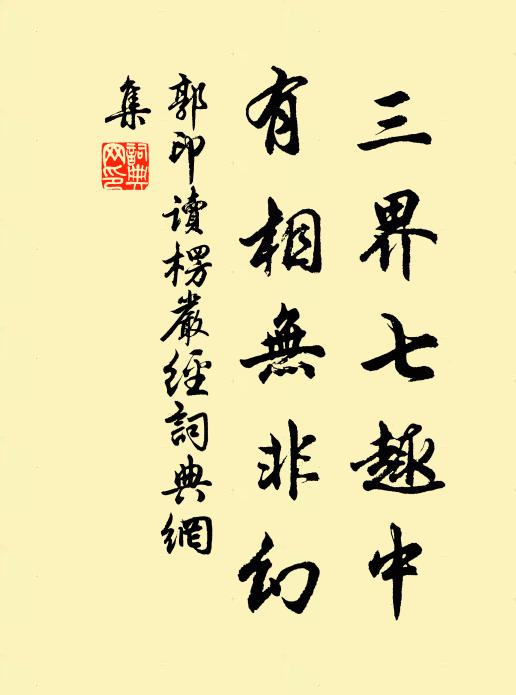 三界七趣中
有相無非幻
郭印讀楞嚴經詞典網
集
詞典網印